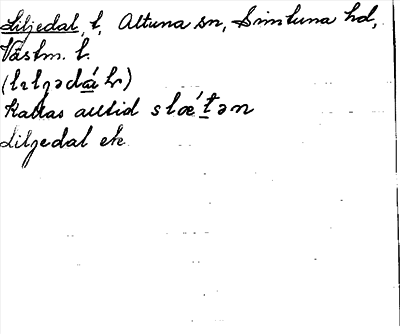 Liljedal, t, Altuna sn, Simtuna hd,
Västm. l.
Kallas alltid slǽtən
Liljedal ek